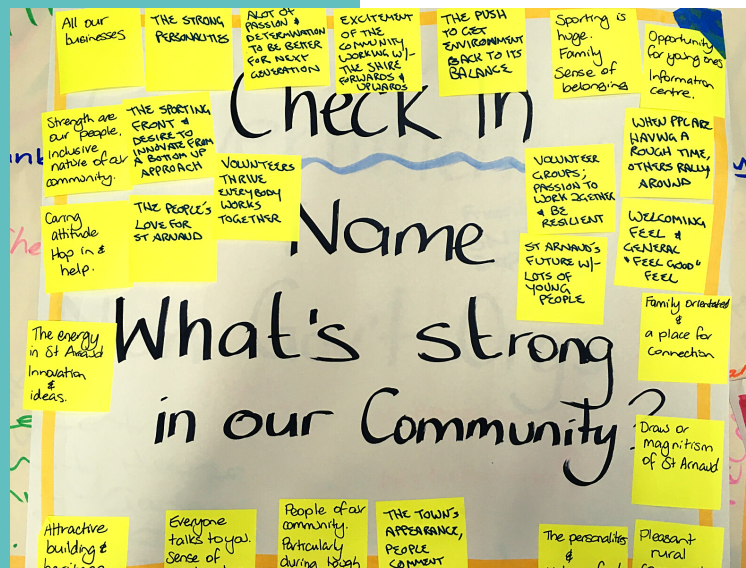 All our
businesses
THE STRONG
PERSONALITIES
ALOT OF
PASSION &
DETERMINATION
TO BE BETTER
FOR NEXT
GENERATION
EXCITEMENT
OF THE
COMMUNITY
WORKING W/-
THE SHIRE
FORWARDS &
UPWARDS
THE PUSH
TO GET
ENVIRONMENT
BACK TO ITS
BALANCE
Sporting is
huge.
Family
Sense of
belonging
Opportunity
for young ones
Information
centre.
Check in
Strength are
our people.
Inclusive
nature of our
community.
THE SPORTING
FRONT &
DESIRE TO
INNOVATE FROM
A BOTTOM UP
APPROACH
VOLUNTEERS
THRIVE
EVERYBODY
WORKS
TOGETHER
VOLUNTEER
GROUPS;
PASSION TO
WORK TOGETHER
& BE
RESILIENT
WHEN PPL ARE
HAVING A
ROUGH TIME,
OTHERS RALLY
AROUND
Caring
attitude
Hop in &
help.
THE PEOPLE'S
LOVE FOR
ST ARNAUD
Name
ST ARNAUD'S
FUTURE W/-
LOTS OF
YOUNG
PEOPLE
WELCOMING
FEEL &
GENERAL
"FEEL GOOD"
FEEL
The energy
in St Arnaud
Innovation
&
ideas.
What's strong
in our Community?
Family orientated
&
a place for
connection
Draw or
magnitism
of St Arnaud
Attractive
building &
Everyone
talks to you.
Sense of
People of our
community.
Particularly
during tough
THE TOWN'S
APPEARANCE,
PEOPLE
COMMENT
The personalities
&
Pleasant
rural